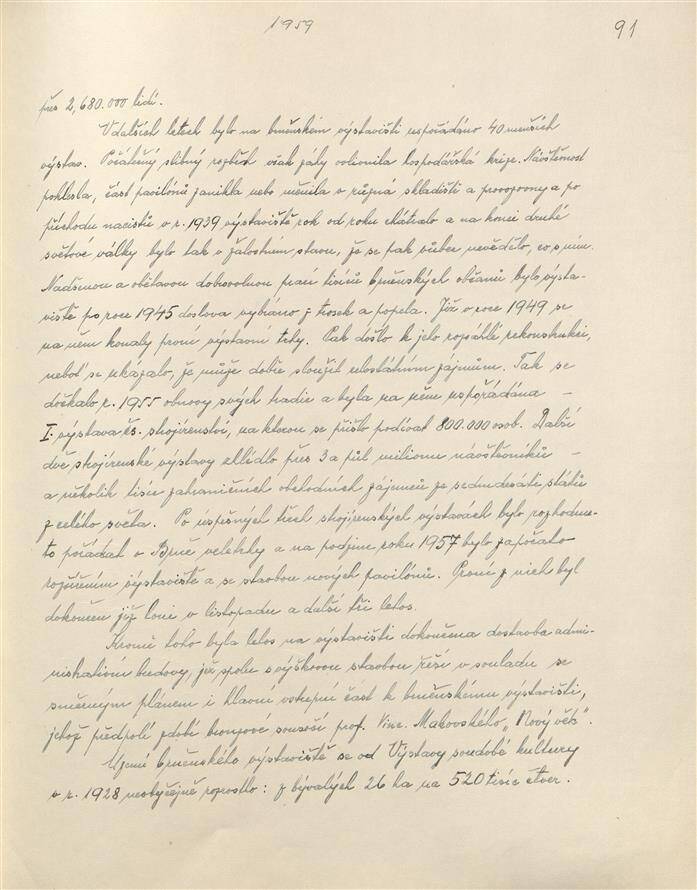 1959
91
přes 2,680.000 lidí.
V dalších letech bylo na brněnském výstavišti uspořádáno 40 menších
výstav. Počáteční slibný rozběh však záhy ovlivnila hospodářská krize. Návštěvnost
poklesla, část pavilónů zanikla nebo měnila v různá skladiště a provozovny a po
příchodu nacistů v r. 1939 výstaviště rok od roku chátralo a na konci druhé
světové války bylo tak v žalostném stavu, že se pak vůbec nevědělo, co s ním.
Nadšenou a obětavou dobrovolnou prací tisíců brněnských občanů bylo výsta-
viště po roce 1945 doslova vybráno z trosek a popela. Již v roce 1949 se
na něm konaly první výstavní trhy. Pak došlo k jeho rozsáhlé rekonstrukci,
neboť se ukázalo, že může dobře sloužit celostátním zájmům. Tak se
dočkalo r. 1955 obnovy svých tradic a byla na něm uspořádána –
I. výstava čs. strojírenství, na kterou se přišlo podívat 800.000 osob. Další
dvě strojírenské výstavy zhlédlo přes 3 a půl milionu návštěvníků –
a několik tisíc zahraničních obchodních zájemců ze sedmdesáti států
z celého světa. Po úspěšných třech strojírenských výstavách bylo rozhodnu-
to pořádat v Brně veletrhy a na podzim roku 1957 bylo započato
rozšířením výstaviště a se stavbou nových pavilónů. První z nich byl
dokončen již loni v listopadu a další tři letos.
Kromě toho byla letos na výstavišti dokončena dostavba admi-
nistrativní budovy, jež spolu s výškovou stavbou řeší v souladu se
směrným plánem i hlavní vstupní část k brněnskému výstavišti,
jehož předpolí zdobí bronzové sousoší prof. Vinc. Makovského „Nový věk".
Území brněnského výstaviště se od Výstavy soudobé kultury
v r. 1928 neobyčejně rozrostlo: z bývalých 26 ha na 520 tisíc čtver.